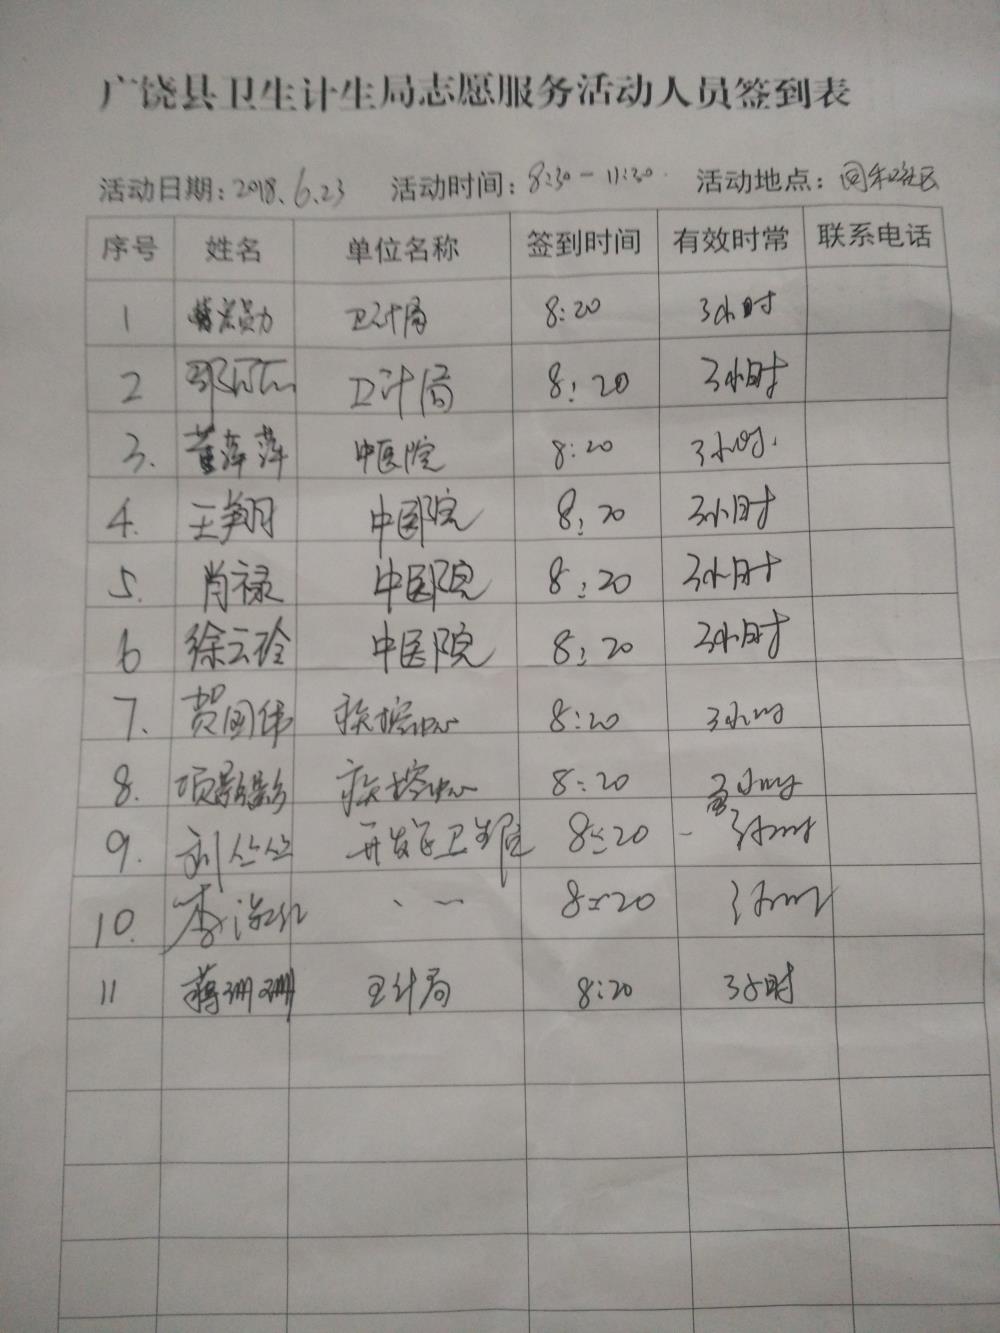 广饶县卫生计生局志愿服务活动人员签到表
活动日期：2018.6.23 活动时间：8:30-11:30. 活动地点：同和社区
序号 姓名 单位名称 签到时间 有效时常 联系电话
1 卫计局 8:20 3小时
2 卫计局 8:20 3小时
3. 董萍萍 中医院 8:20 3小时.
4. 王翔 中医院 8:20 3小时
5. 肖禄 中医院 8:20 3小时
6 徐云玲 中医院 8:20 3小时
7. 贺国伟 疾控中心 8:20 3小时
8. 项影影 疾控中心 8:20 3小时
9. 刘丝丝 开发区卫生院 8:20 3小时
10. 李 8:20 3小时
11 蒋珊珊 卫计局 8:20 3小时